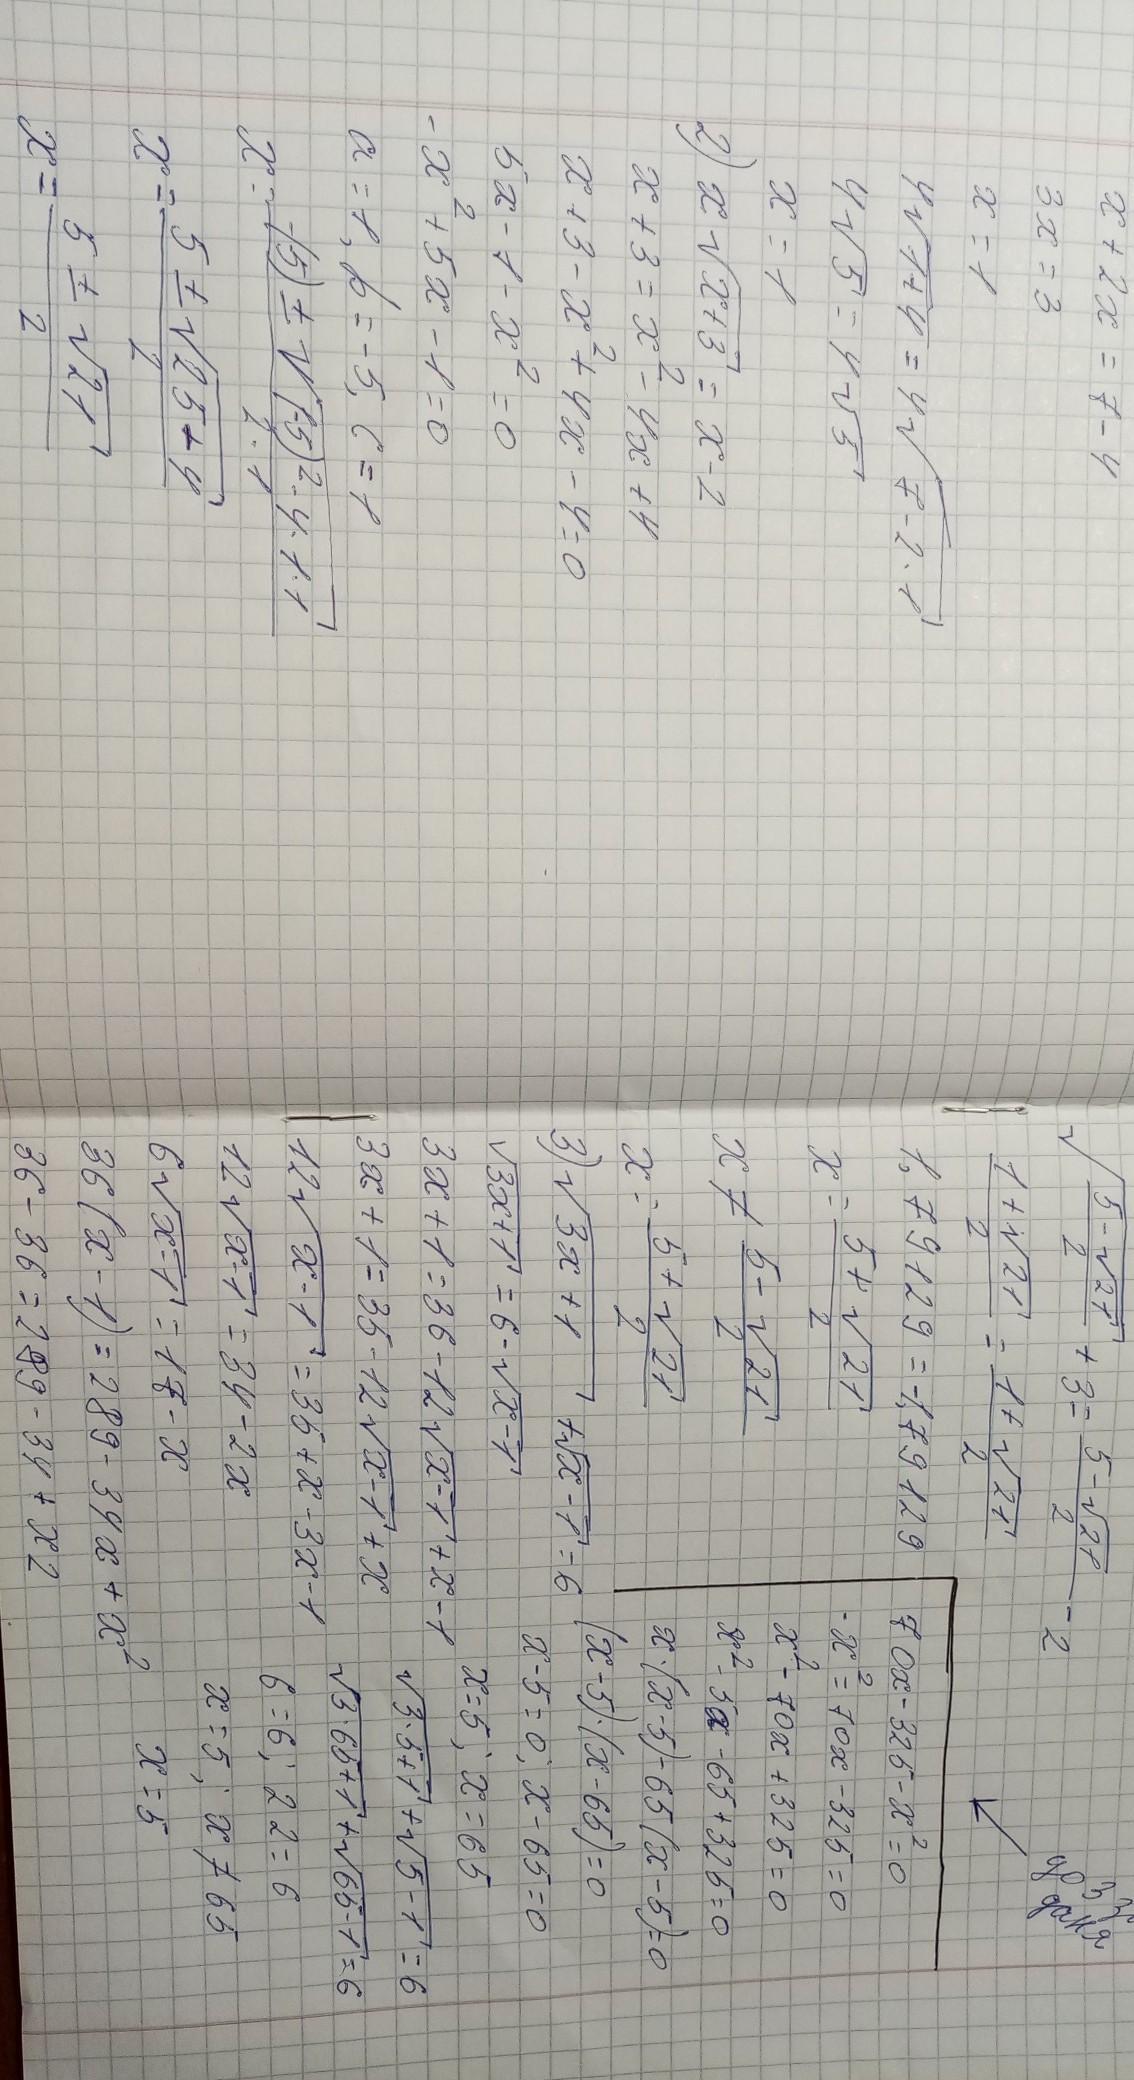 x + 2x = 7 - 4
3x = 3
x = 1
4√1+4 = 4√7-2·1
4√5 = 4√5
x = 1
2) x√x+3 = x-2
x+3 = x² - 4x + 4
x+3 - x² + 4x - 4 = 0
5x - 1 - x² = 0
- x² + 5x - 1 = 0
a = 1, b = -5, c = 1
x = -(-5) ∓ √(-5)² - 4·1·1 / 2·1
x = 5 ∓ √25-4 / 2
x = 5 ∓ √21 / 2
√5-√21 / 2 + 3 = 5-√21 / 2 - 2
1+√21 / 2 = 1+√21 / 2
1,79129 = -1,79129
x = 5+√21 / 2
x ≠ 5-√21 / 2
x = 5+√21 / 2
3) √3x+1 + √x-1 = 6
√3x+1 = 6-√x-1
3x+1 = 36-12√x-1 + x-1
3x+1 = 35-12√x-1 + x
12√x-1 = 35+x-3x-1
12√x-1 = 34-2x
6√x-1 = 17-x
36(x-1) = 289-34x+x²
36-36 = 289-34+x2
70x-325-x²=0
-x² = 70x-325=0
x²-70x+325=0
x²-5x-65+325=0
x·(x-5)-65(x-5)=0
(x-5)·(x-65)=0
x-5=0; x-65=0
x=5; x=65
√3·5+1+√5-1=6
√3·65+1+√65-1=6
6=6; 22=6
x=5; x≠65
x=5